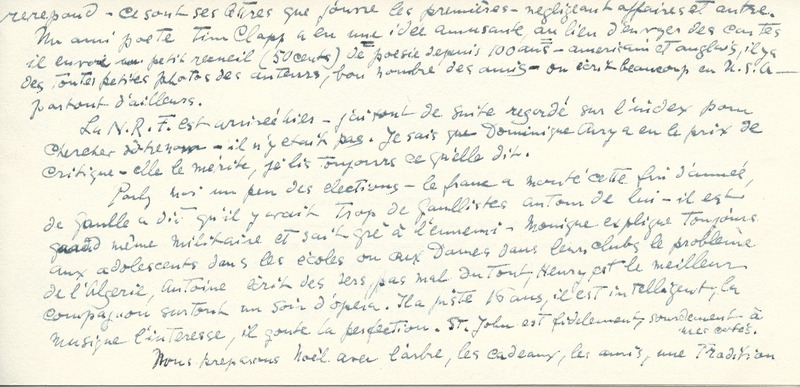 rerepond - ce sont ses lettres que j'ouvre les premières - negligeant affaires et autre.
Un ami poete Tim Clapp a eu une idée amusante, au lieu d'envoyer des cartes
il envoie un petit recueil (50 cents) de poesie depuis 100 ans - americain et anglais, il y a
des toutes petites photos des auteurs, bon nombre des amis - on écrit beaucoup en U.S.A -
partout d'ailleurs.
La N.R.F. est arrivée hier - j'ai tout de suite regardé sur l'index pour
chercher votre nom - il n'y etait pas. Je sais que Dominique Aury a eu le prix de
critique - elle le mérite, je lis toujours ce qu'elle dit.
Parlez moi un peu des elections - le franc a monté cette fin d'année,
de Gaulle a dit qu'il y avait trop de Gaullistes autour de lui - il est
quand même militaire et sait gré à l'ennemi - Monique explique toujours
aux adolescents dans les écoles ou aux Dames dans leurs clubs le problème
de l'Algerie, Antoine écrit des vers, pas mal du tout, Henry est le meilleur
compagnon surtout un soir d'opera. Il a juste 16 ans, il est intelligent, la
musique l'interesse, il goute la perfection. St. John est fidèlement, sourdement à
mes cotés.
Nous preparons Noël avec l'arbre, les cadeaux, les amis, une Tradition